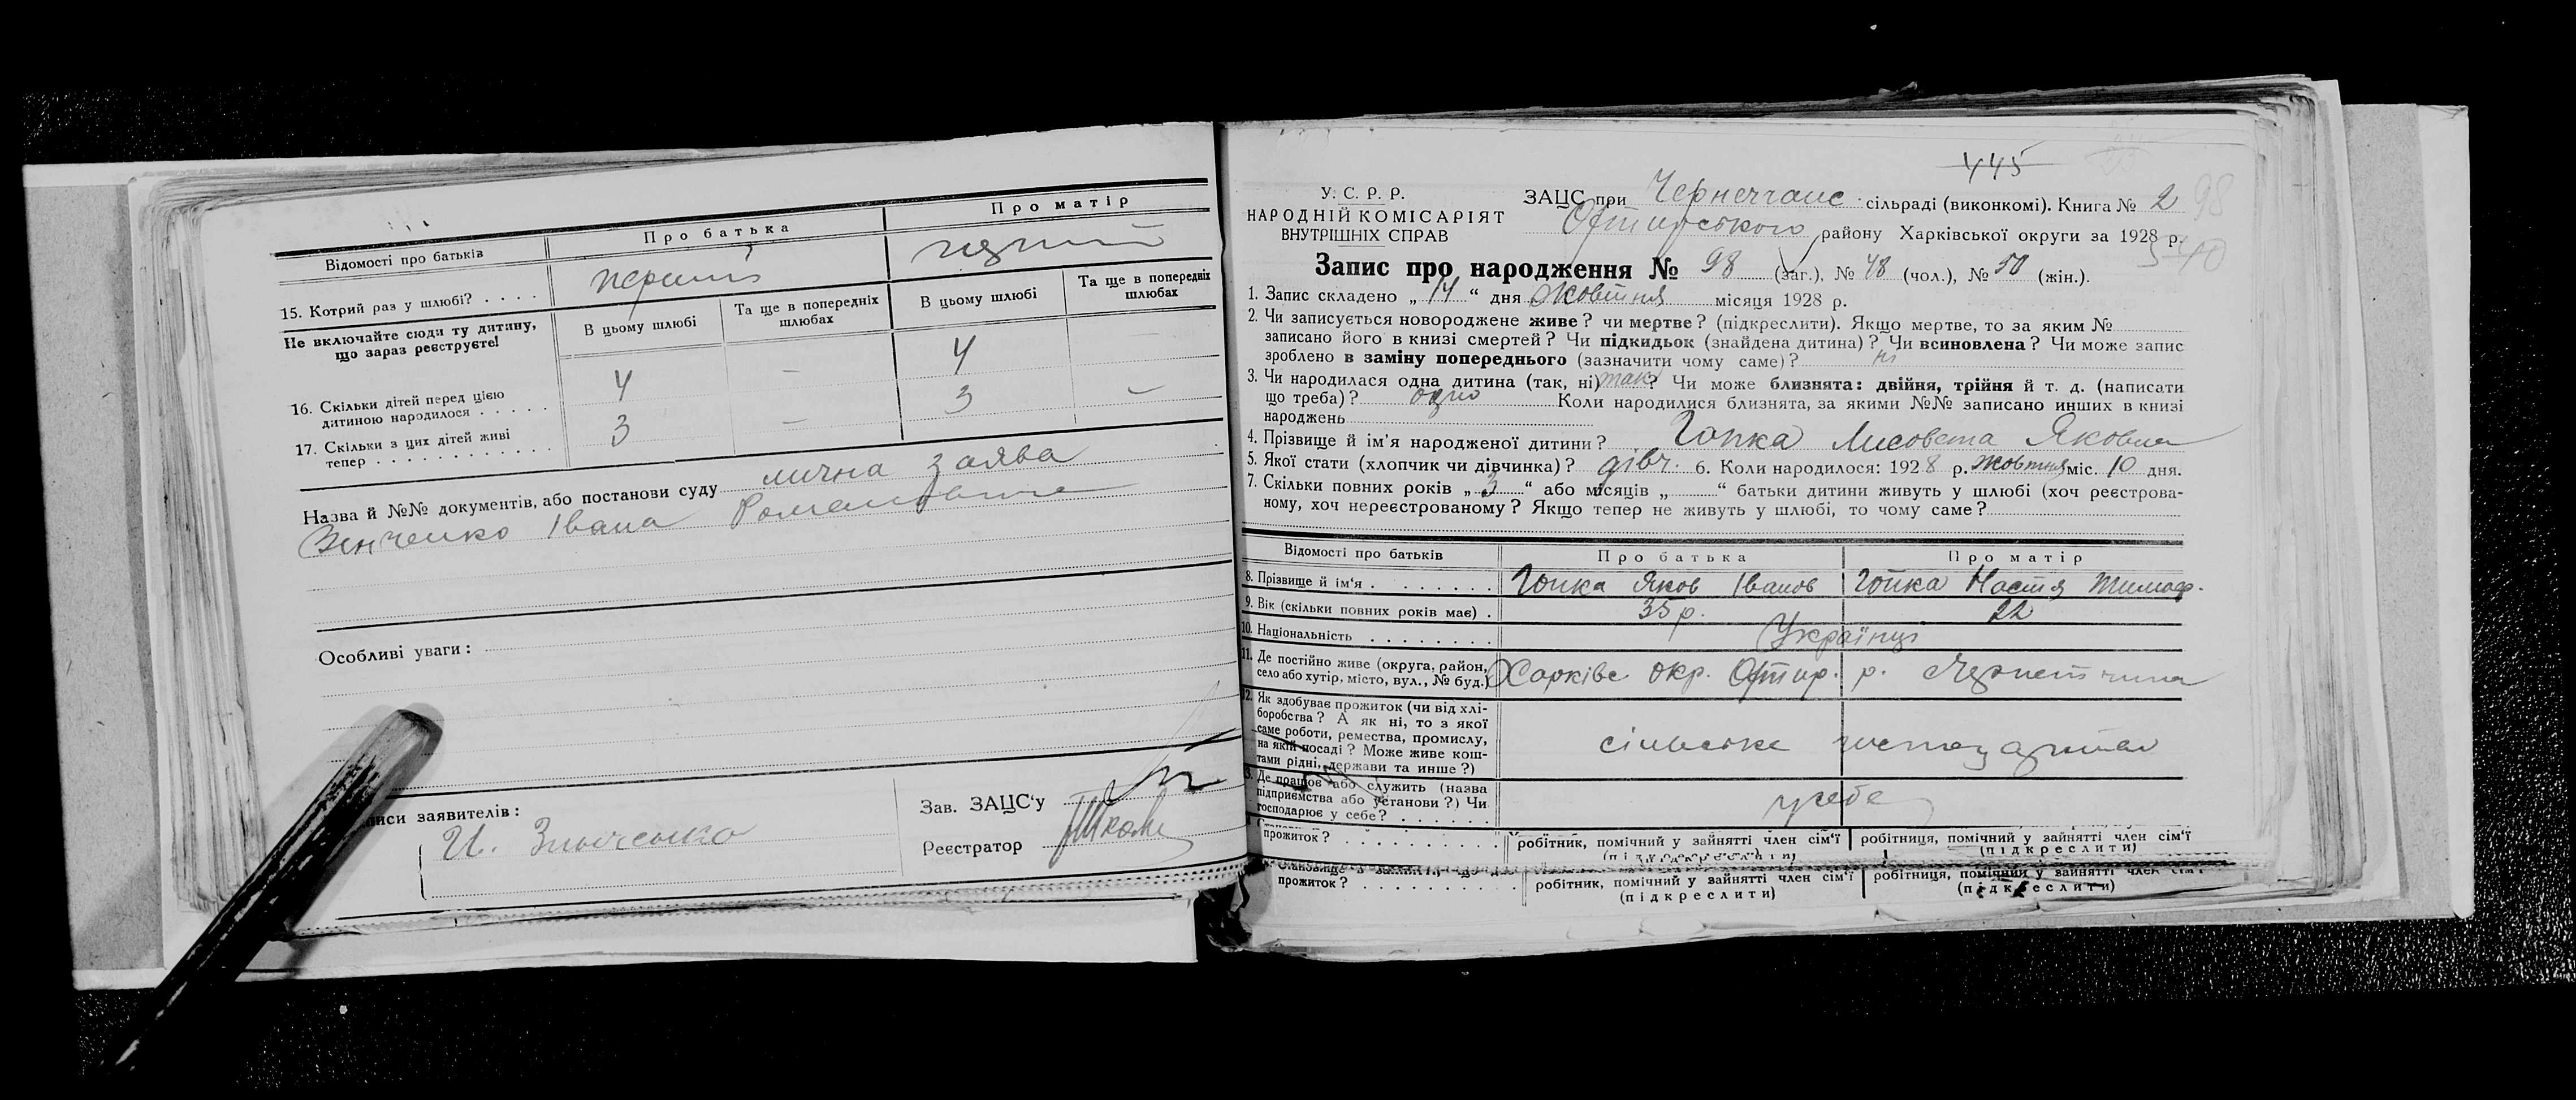 Відомості про батьків
Про батька
Про матір
15. Котрий раз у шлюбі? . . . .
перший
Не включайте сюди ту дитину,
що зараз реєструєте!
В цьому шлюбі
Та ще в попередніх
шлюбах
В цьому шлюбі
Та ще в попередніх
шлюбах
16. Скільки дітей перед цією
дитиною народилося . . . . .
4
-
4
17. Скільки з цих дітей живі
тепер . . . . . . . . . . . .
3
-
3
-
Назва й №№ документів, або постанови суду лична заява
Зінченко Івана Романовича
Особливі уваги:
писи заявителів:
Зав. ЗАЦС'у
Реєстратор
445
У. С. Р. Р.
НАРОДНІЙ КОМІСАРІЯТ
ВНУТРІШНІХ СПРАВ
ЗАЦС при Чернеччанс. сільраді (виконкомі). Книга № 2
98
Охтирського району Харківської округи за 1928 р.
Запис про народження № 98 (заг.), № 48 (чол.), № 50 (жін.).
1. Запис складено „ 14 “ дня жовтня місяця 1928 р.
2. Чи записується новороджене живе? чи мертве? (підкреслити). Якщо мертве, то за яким №
записано його в книзі смертей? Чи підкидьок (знайдена дитина)? Чи всиновлена? Чи може запис
зроблено в заміну попереднього (зазначити чому саме)? ні
3. Чи народилася одна дитина (так, ні) так? Чи може близнята: двійня, трійня й т. д. (написати
що треба)? одно Коли народилися близнята, за якими №№ записано инших в книзі
народжень
4. Прізвище й ім'я народженої дитини? Гопка Лисовета Яковна
5. Якої стати (хлопчик чи дівчинка)? дівч. 6. Коли народилося: 1928 р. жовтня міс. 10 дня.
7. Скільки повних років „ 3 “ або місяців „ “ батьки дитини живуть у шлюбі (хоч реєстрова-
ному, хоч нереєстрованому? Якщо тепер не живуть у шлюбі, то чому саме?
Відомості про батьків
Про батька
Про матір
8. Прізвище й ім'я . . . . . . . .
Гопка Яков Іванов
Гопка Настя Тимоф.
9. Вік (скільки повних років має) .
35 р.
22
10. Національність . . . . . . . .
Українці
11. Де постійно живе (округа, район,
село або хутір, місто, вул., № буд.)
Харківс окр. Охтир. р. Чернетчина
12. Як здобуває прожиток (чи від хлі-
боробства? А як ні, то з якої
саме роботи, ремества, промислу,
на якій посаді? Може живе кош-
тами рідні, держави та инше?)
сільське
13. Де працює або служить (назва
підприємства або установи?) Чи
господарює у себе? . . . . . .
у себе
прожиток? . . . . . . . . . .
робітник, помічний у зайнятті член сім'ї
робітниця, помічний у зайнятті член сім'ї
(підкреслити)
прожиток? . . . . . . . . . .
робітник, помічний у зайнятті член сім'ї
(підкреслити)
робітниця, помічний у зайнятті член сім'ї
(підкреслити)